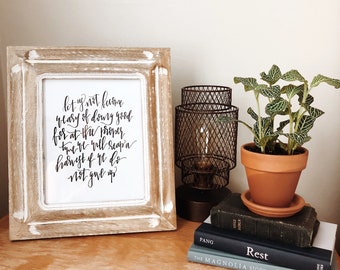 let us not become
weary of doing good
for at the proper
time we will reap a
harvest if we do
not give up
FANG Rest
THE MAGNOLIA